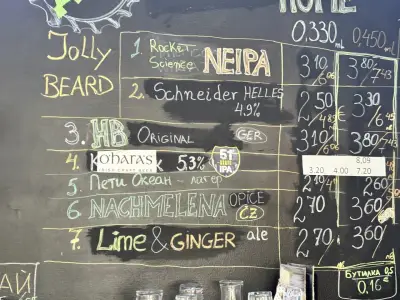 HOME
0,330 mL 0,450 mL
Jolly
BEARD
1 Rocket Science NEIPA 3,10 6,06 3,80 7,43
2. Schneider HELLES 4,9% 2,50 3,30
3. HB ORIGINAL GER 3,10 6,06 3,80 7,43
4. O'haras 5,3% 51 IPA 3.20 4.00 7.20 8,09
5 Пети Океан - лагер 2,60
6 NACHMELENA OPICE CZ 2,70 3,60
7. Lime & GINGER ale 2,70 3,60
АЙ
Бутилка 0,5
0,16 €